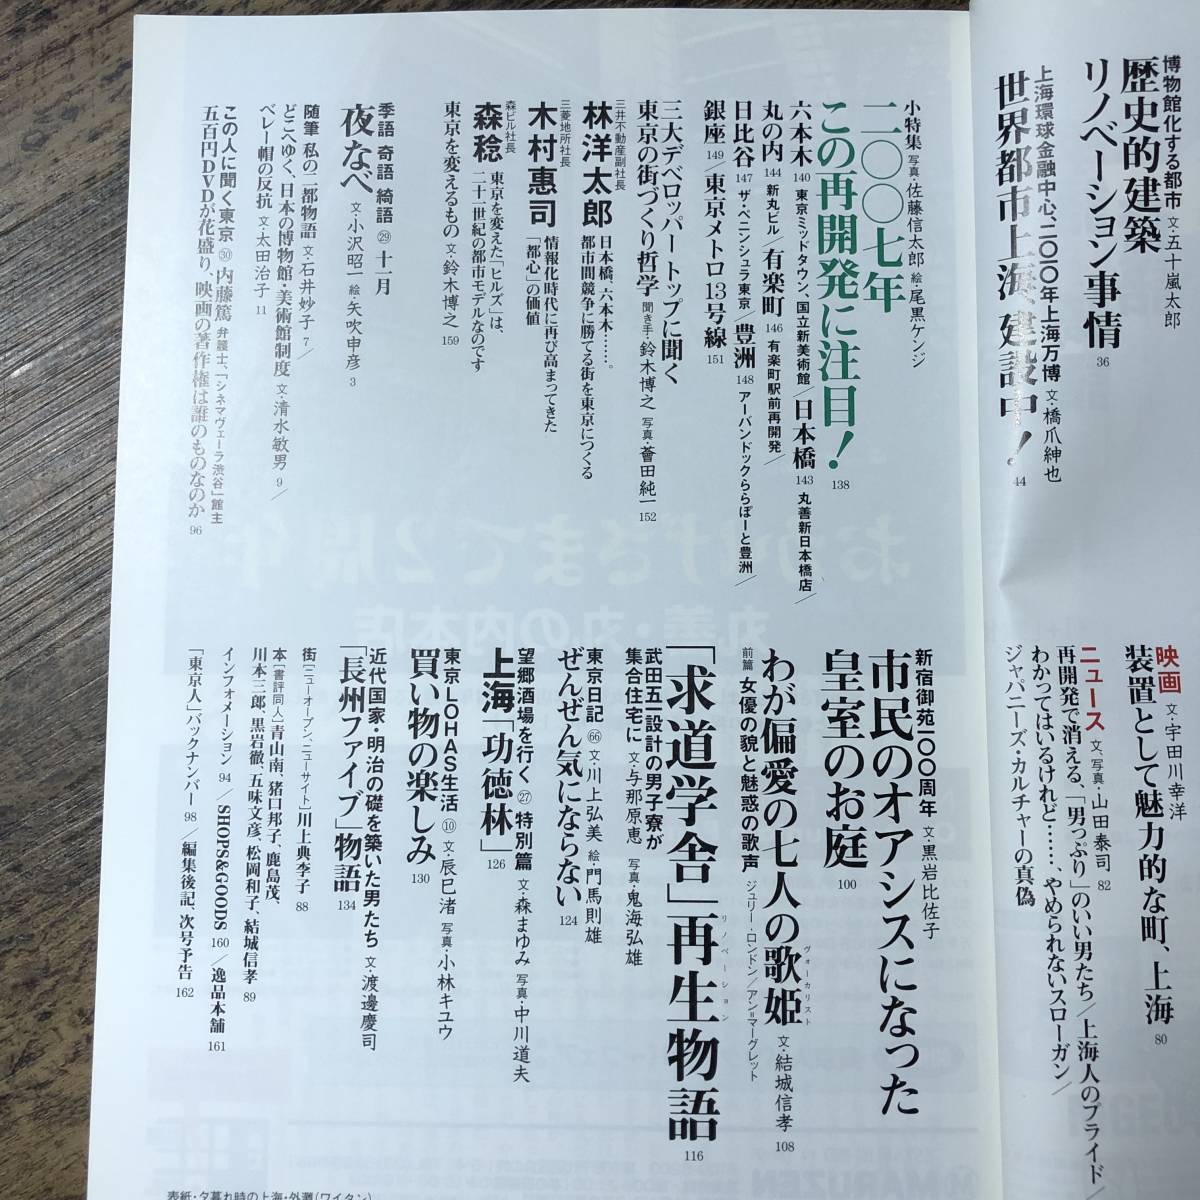 博物館化する都市 文・五十嵐太郎
歴史的建築
リノベーション事情 36
上海環球金融中心、二〇一〇年上海万博 文・橋爪紳也
世界都市上海、建設中! 44
映画 文・宇田川幸洋
装置として魅力的な町、上海 80
ニュース 文、写真・山田泰司 82
再開発で消える、「男っぷり」のいい男たち/上海人のプライド/
わかってはいるけれど……、やめられないスローガン/
ジャパニーズ・カルチャーの真偽
小特集 写真・佐藤信太郎 絵・尾黒ケンジ
二〇〇七年
この再開発に注目! 138
六本木 140 東京ミッドタウン、国立新美術館/日本橋 143 丸善新日本橋店/
丸の内 144 新丸ビル/有楽町 146 有楽町駅前再開発/
日比谷 147 ザ・ペニンシュラ東京/豊洲 148 アーバンドックららぽーと豊洲/
銀座 149/東京メトロ13号線 151
三大デベロッパートップに聞く
東京の街づくり哲学 聞き手・鈴木博之 写真・薈田純一 152
三井不動産副社長
林洋太郎 日本橋、六本木……。
都市間競争に勝てる街を東京につくる
三菱地所社長
木村惠司 情報化時代に再び高まってきた
「都心」の価値
森ビル社長
森稔 東京を変えた「ヒルズ」は、
二十一世紀の都市モデルなのです
東京を変えるもの 文・鈴木博之 159
季語 奇語 綺語 ㉙ 十一月
夜なべ 文・小沢昭一 絵・矢吹申彦 3
随筆 私の二都物語 文・石井妙子 7/
どこゆく、日本の博物館・美術館制度 文・清水敏男 9/
ベレー帽の反抗 文・太田治子 11
この人に聞く東京 ㉚ 内藤篤 弁護士、「シネマヴェーラ渋谷」館主
五百円DVDが花盛り、映画の著作権は誰のものなのか 96
新宿御苑一〇〇周年 文・黒岩比佐子
市民のオアシスになった
皇室のお庭 100
わが偏愛の七人の歌姫 ヴォーカリスト 文・結城信孝 108
前篇 女優の貌と魅惑の歌声 ジュリー・ロンドン/アン=マーグレット
「求道学舎」再生物語 リノベーション 116
武田五一設計の男子寮が
集合住宅に 文・与那原恵 写真・鬼海弘雄
東京日記 66 文・川上弘美 絵・門馬則雄
ぜんぜん気にならない 124
望郷酒場を行く ㉗ 特別篇 文・森まゆみ 写真・中川道夫
上海「功徳林」 126
東京LOHAS生活 ⑩ 文・辰巳渚 写真・小林キユウ
買い物の楽しみ 130
近代国家・明治の礎を築いた男たち 文・渡邊慶司
「長州ファイブ」物語 134
街 [ニューオープン、ニューサイト] 川上典李子 88
本 [書評同人] 青山南、猪口邦子、鹿島茂、
川本三郎、黒岩徹、五味文彦、松岡和子、結城信孝 89
インフォメーション 94/SHOPS&GOODS 160/逸品本舗 161
「東京人」バックナンバー 98/編集後記、次号予告 162
表紙・夕暮れ時の上海・外灘(ワイタン)